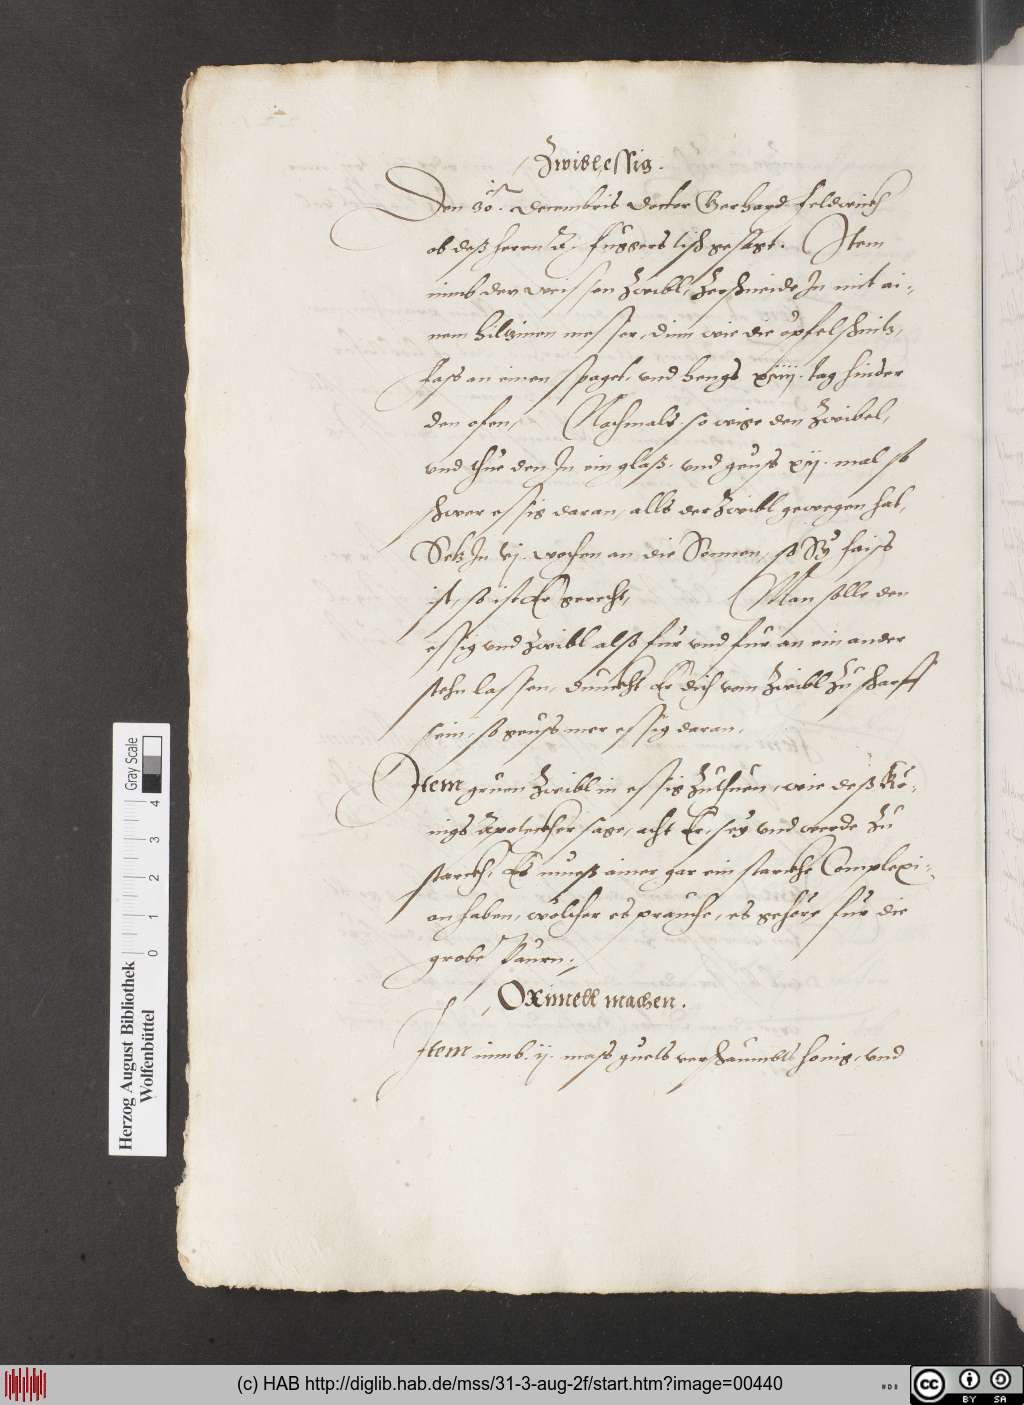 Zwiblessig.
Den 30. decembris doctor Gerhard feldwickh
ob deß herren A. fuggers tisch gesagt. Item
nimb der weissen zwibl, zerschneide In mit ai-
nem hiltzinen messer, dinn wie die öpfelschnitz,
fass an einen spaget, und hengs xiiij. tag hinder
den ofen, Nachmals so wige den Zwibel,
und thue den In ein glaß. und geuss xij. mal so
schwer essig daran, alls der zwibl gewegen hat,
Setz In vj. wochen an die Sonnen, so Sy haiss
ist, so ist Er gerecht, Man solle den
essig und zwibl also fur und fur an ein ander
stehn lassen, dunckht Er dich vom zwibl zu scharff
sein, so geuss mer essig daran,
Item gruen zwibl in essig zuthuen, wie deß Kö-
nigs Apoteckher sage, acht Er, sey und werde zu
starckh, Es mueß ainer gar ein starckhe Complexi-
on haben, wölcher es prauche, es gehöre fur die
grobe Paurn.
Oximell machen.
Item nimb. ij. mass guets verschaumbts honig, und
Herzog August Bibliothek
Wolfenbüttel
0 1 2 3 4
Gray Scale
(c) HAB http://diglib.hab.de/mss/31-3-aug-2f/start.htm?image=00440
cc BY SA